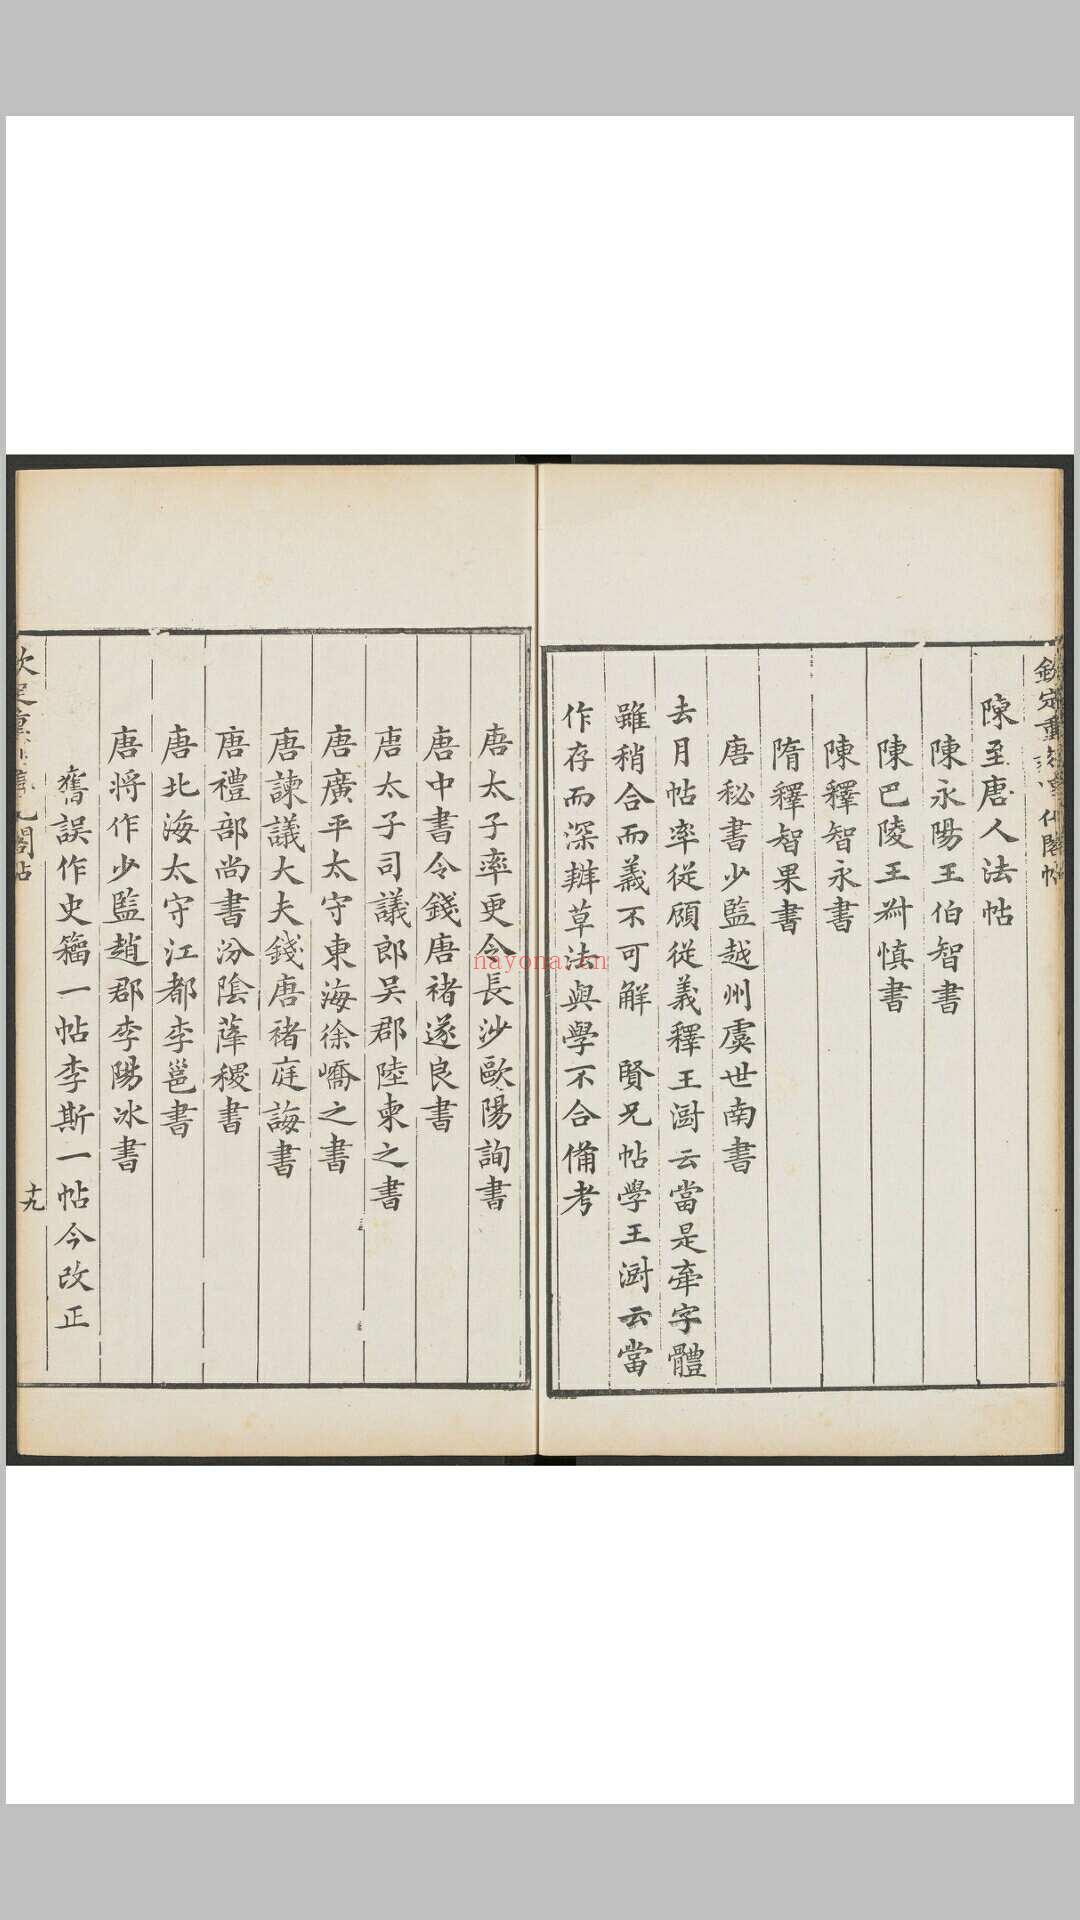 欽定重刻淳化閣帖
陳至唐人法帖
陳永陽王伯智書
陳巴陵王叔慎書
陳釋智永書
隋釋智果書
唐秘書少監越州虞世南書
去月帖率從顧從義釋王澍云當是牽字體
雖稍合而義不可解　賢兄帖學王澍云當
作存而深辨草法與學不合備考
唐太子率更令長沙歐陽詢書
唐中書令錢唐褚遂良書
唐太子司議郎吳郡陸柬之書
唐廣平太守東海徐嶠之書
唐諫議大夫錢唐褚庭誨書
唐禮部尚書汾陰薛稷書
唐北海太守江都李邕書
唐將作少監趙郡李陽冰書
舊誤作史籀一帖李斯一帖今改正
閣帖
十九
nayona.cn